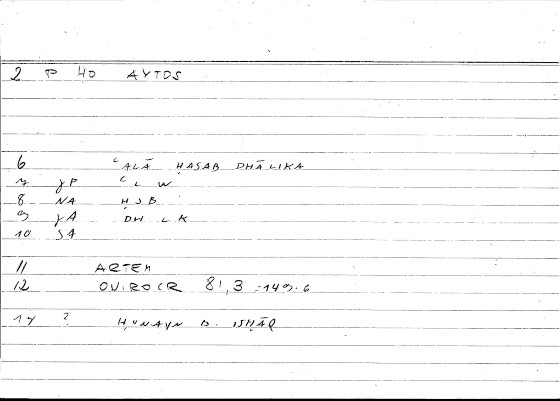 2 P 40 AYTOS
6 ʿALĀ ḤASAB DHĀLIKA
7 γP ʿ L W
8 NA Ḥ S B
9 γA DH L K
10 SA
11 ARTEM
12 OVIROCR 81,3 =149.6
14 ? ḤUNAYN B. ISḤĀQ